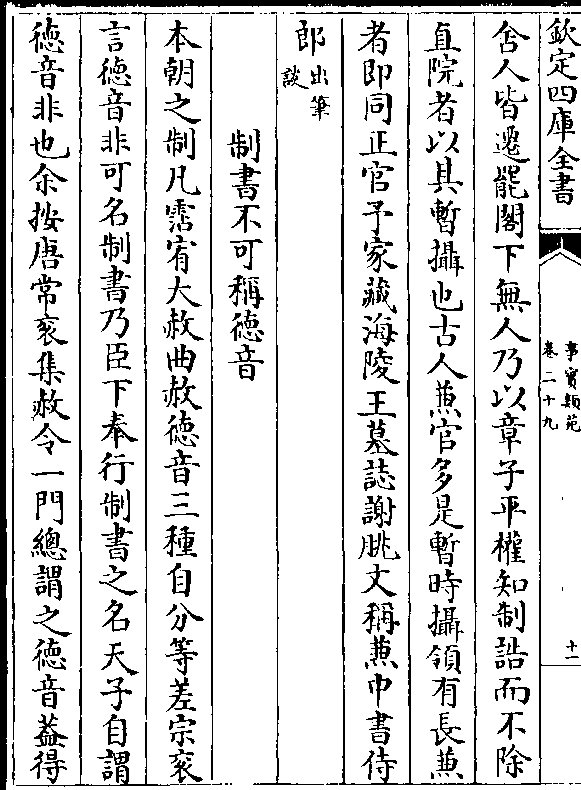 欽定四庫全書
事實類苑
卷二十九
十一
舍人皆遷罷閣下無人乃以章子平權知制誥而不除
直院者以其暫攝也古人兼官多是暫時攝領有長兼
者即同正官予家藏海陵王墓誌謝朓文稱兼中書侍
郎出筆
談
制書不可稱徳音
本朝之制凡霈宥大赦曲赦徳音三種自分等差宗衮
言徳音非可名制書乃臣下奉行制書之名天子自謂
徳音非也余按唐常衮集赦令一門總謂之徳音葢得